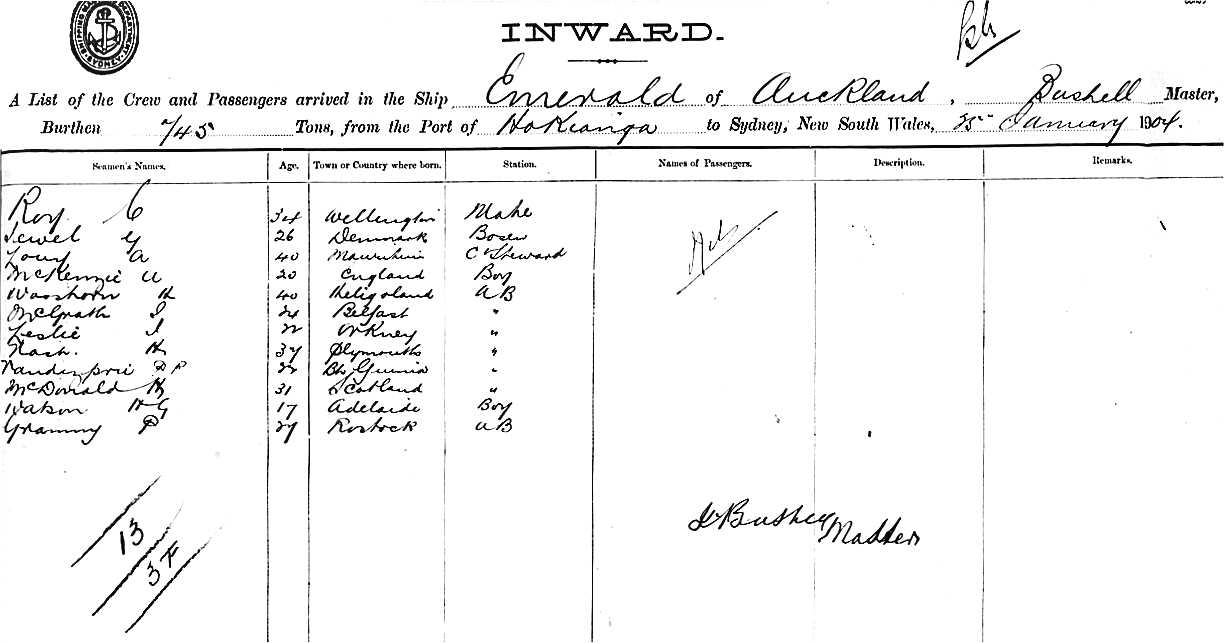 SHIPPING MASTER'S DEPARTMENT SYDNEY
INWARD.
A List of the Crew and Passengers arrived in the Ship Emerald of Auckland, Bushell Master,
Burthen 745 Tons, from the Port of Hokianga to Sydney, New South Wales, 25 January 1904.
Seamen's Names. Age. Town or Country where born. Station. Names of Passengers. Description. Remarks.
Roy C 34 Wellington Mate
Jewel G 26 Denmark Bosen
A 40 Mauritius Ck Steward
McKenzie U 20 England Boy
H 40 Heligoland AB
McGrath J 24 Belfast "
Leslie J 22 Orkney "
Nash. H 37 Plymouth "
P P 22 Bh Guinia "
McDonald H 31 Scotland "
Watson H G 17 Adelaide Boy
Grammy P 27 Rostock AB
Nil
13
3 F
J Bushell Master